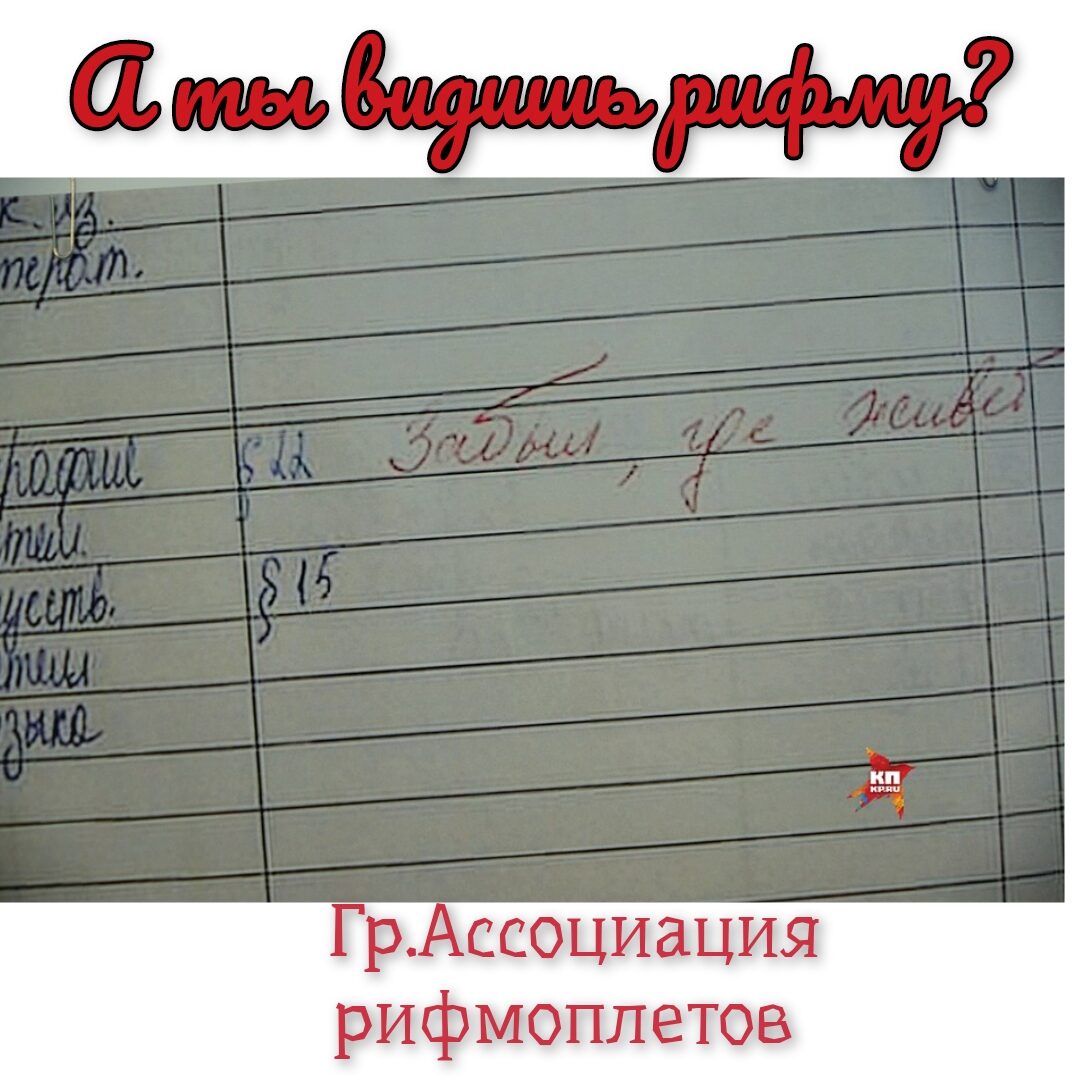 А ты видишь рифму?
к. яз.
терат.
§ 22 Забыл, где живёт
§ 15
зыка
КП
KP.RU
Гр.Ассоциация
рифмоплетов